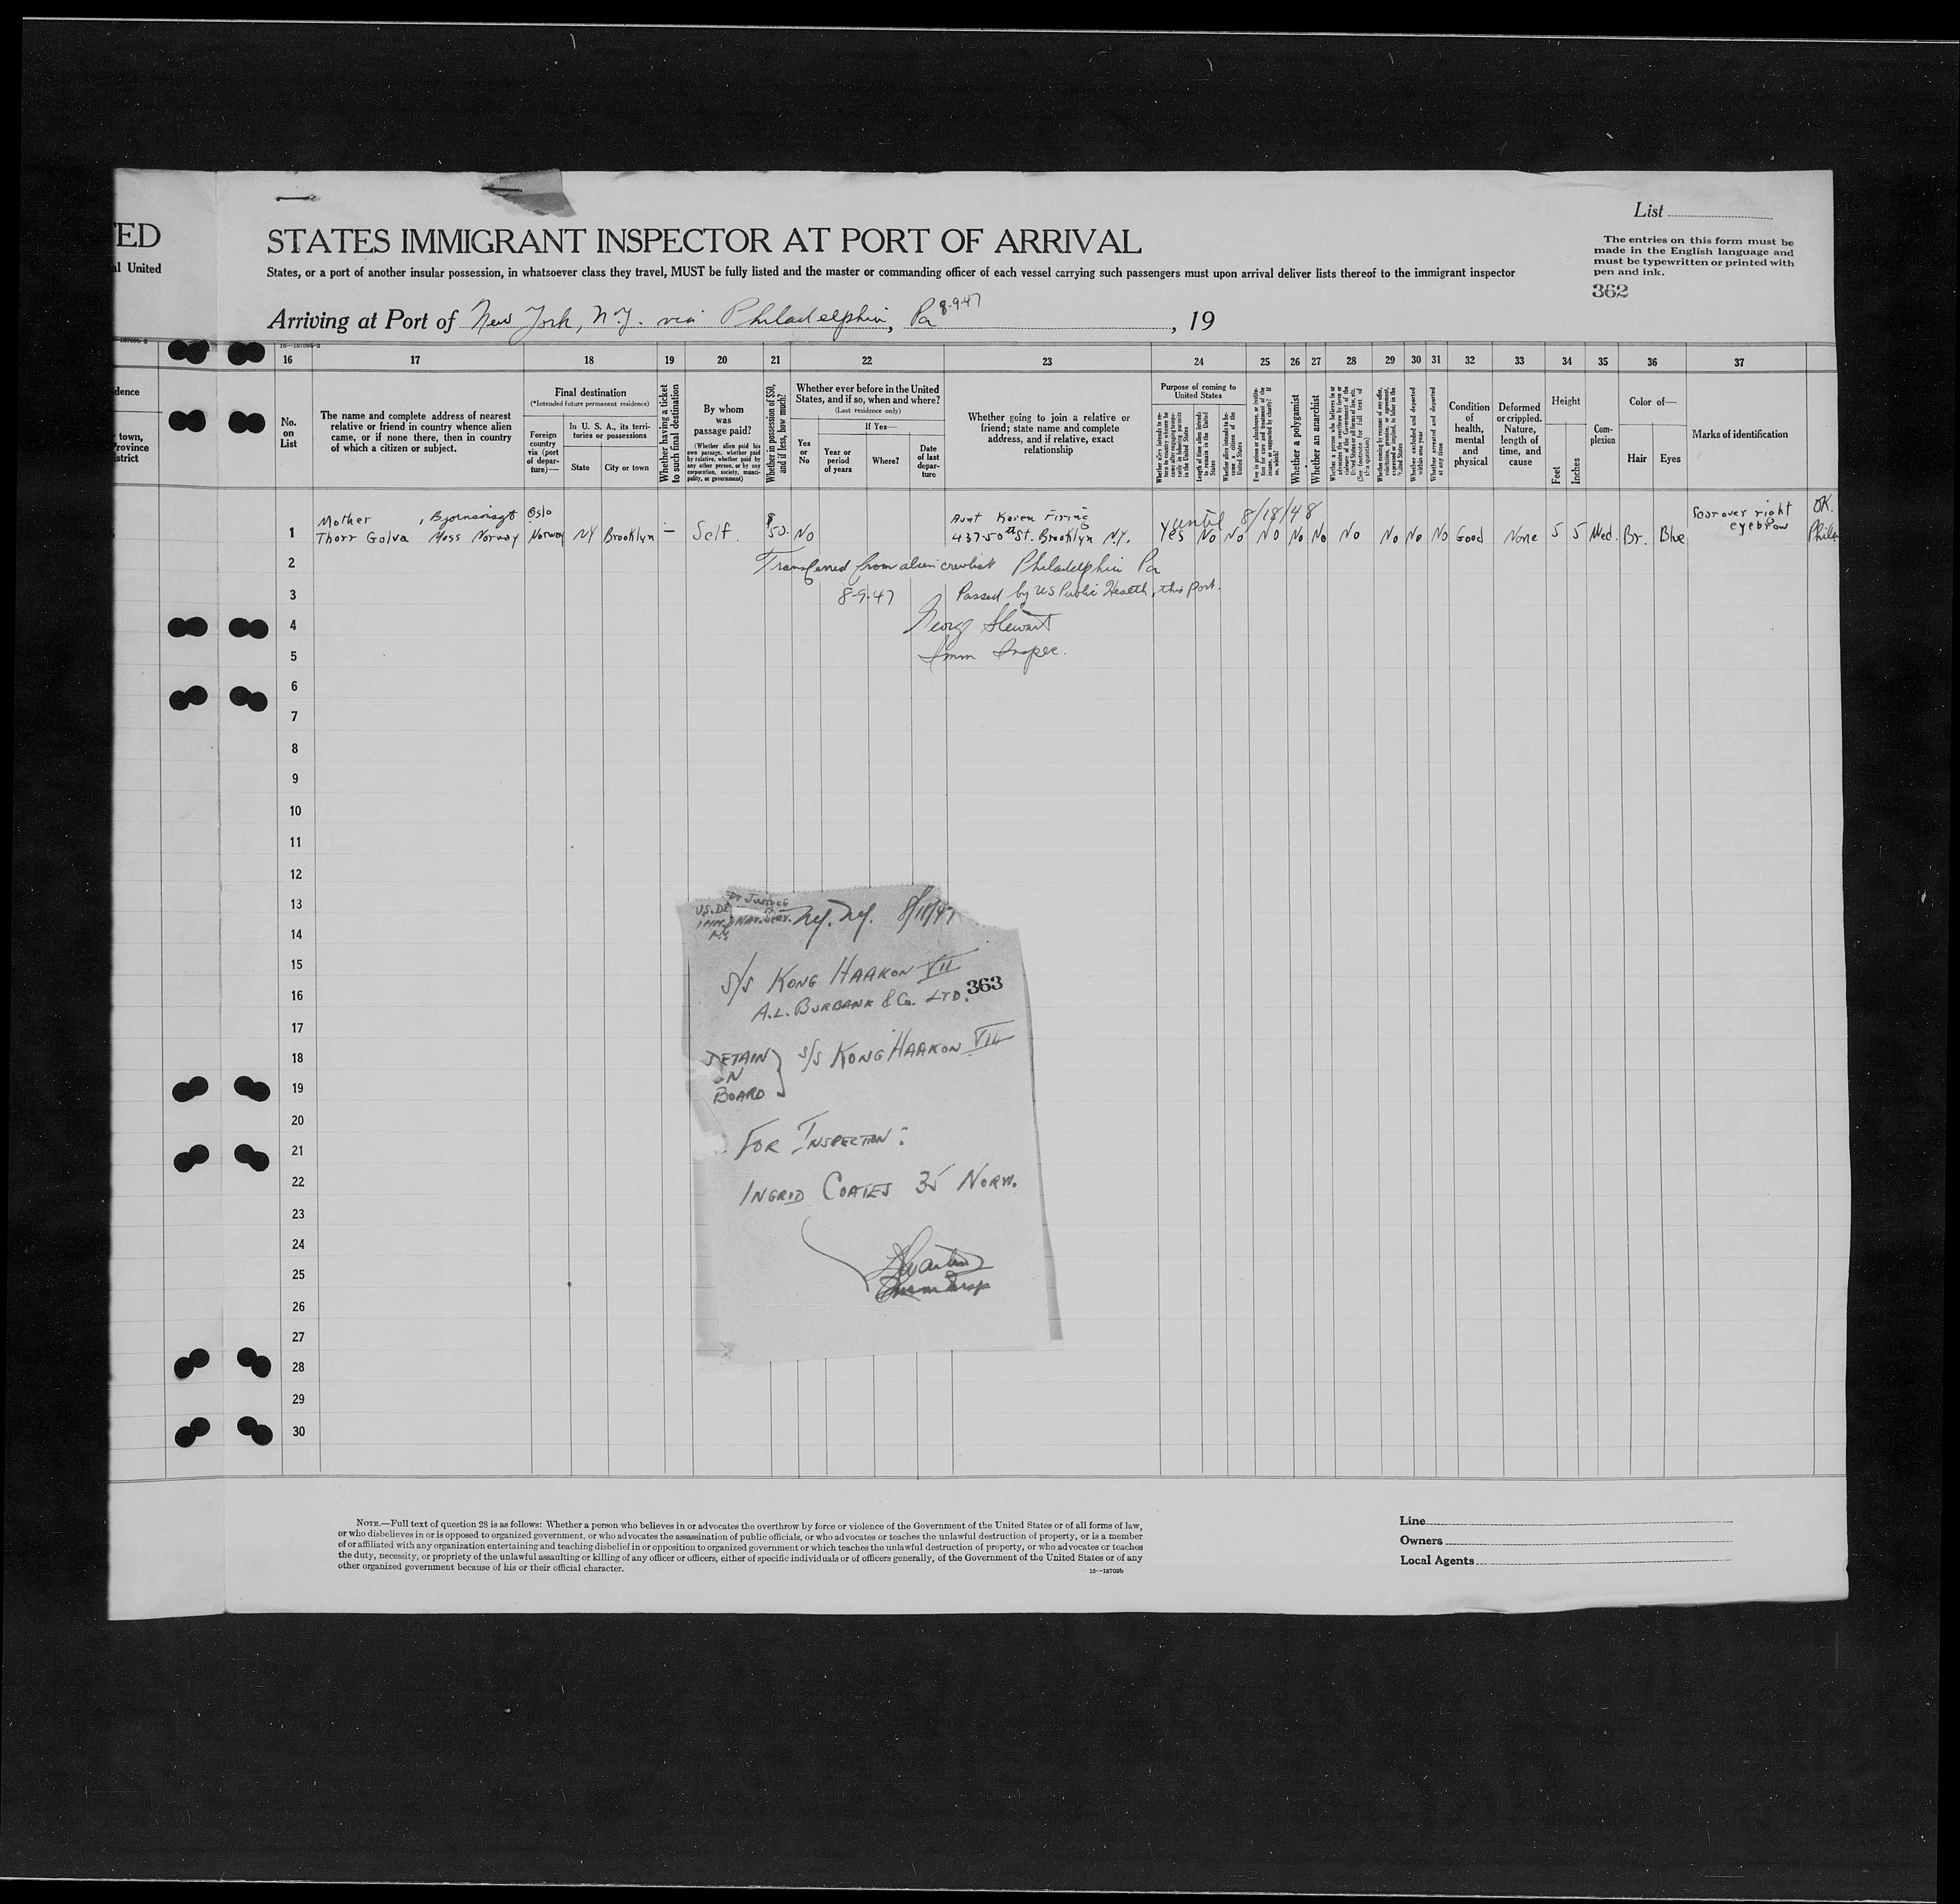 TED
al United
List
STATES IMMIGRANT INSPECTOR AT PORT OF ARRIVAL
The entries on this form must be
made in the English language and
must be typewritten or printed with
pen and ink.
States, or a port of another insular possession, in whatsoever class they travel, MUST be fully listed and the master or commanding officer of each vessel carrying such passengers must upon arrival deliver lists thereof to the immigrant inspector
362
Arriving at Port of New York, N.Y. via Philadelphia, Pa 8-9-47, 19
16 17 18 19 20 21 22 23 24 25 26 27 28 29 30 31 32 33 34 35 36 37
dence
town,
Province
istrict
No.
on
List
The name and complete address of nearest
relative or friend in country whence alien
came, or if none there, then in country
of which a citizen or subject.
Final destination
(*Intended future permanent residence)
Foreign
country
via (port
of depar-
ture)—
In U. S. A., its terri-
tories or possessions
State
City or town
Whether having a ticket
to such final destination
By whom
was
passage paid?
(Whether alien paid his
own passage, whether paid
by relative, whether paid by
any other person, or by any
corporation, society, munici-
pality, or government)
Whether in possession of $50,
and if less, how much?
Whether ever before in the United
States, and if so, when and where?
(Last residence only)
Yes
or
No
If Yes—
Year or
period
of years
Where?
Date
of last
depar-
ture
Whether going to join a relative or
friend; state name and complete
address, and if relative, exact
relationship
Purpose of coming to
United States
Length of time alien intends
to remain in the United
States
Whether alien intends to be-
come a citizen of the
United States
Whether a polygamist
Whether an anarchist
Whether excluded and deported
within one year
Whether arrested and deported
at any time
Condition
of
health,
mental
and
physical
Deformed
or crippled.
Nature,
length of
time, and
cause
Height
Feet
Inches
Com-
plexion
Color of—
Hair
Eyes
Marks of identification
Mother , Bjornsonsgt Oslo
Aunt Karen Firing
until 8/18/48
Scar over right OK.
1 Thorr Galva Moss Norway Norway NY Brooklyn — Self. $50. No 437-50th St. Brooklyn N.Y. Yes No No No No No No No No No Good None 5 5 Med. Br. Blue eyebrow Phila
2 Transferred from alien crewlist Philadelphia Pa
3 8-9-47 Passed by US Public Health, this port.
4 Georg Stewart
5 Imm Inspec.
6
7
8
9
10
11
12
13
14
15
16
17
18
19
20
21
22
23
24
25
26
27
28
29
30
U.S. Dept of Justice
N.Y. N.Y. 8/11/47
S/S KONG HAAKON VII
363
A.L. BURBANK & Co. LTD.
DETAIN
ON
BOARD
S/S KONG HAAKON VII
FOR INSPECTION:
INGRID COATES 35 NORW.
NOTE.—Full text of question 28 is as follows: Whether a person who believes in or advocates the overthrow by force or violence of the Government of the United States or of all forms of law,
or who disbelieves in or is opposed to organized government, or who advocates the assassination of public officials, or who advocates or teaches the unlawful destruction of property, or is a member
of or affiliated with any organization entertaining and teaching disbelief in or opposition to organized government or which teaches the unlawful destruction of property, or who advocates or teaches
the duty, necessity, or propriety of the unlawful assaulting or killing of any officer or officers, either of specific individuals or of officers generally, of the Government of the United States or of any
other organized government because of his or their official character.
16—18709b
Line
Owners
Local Agents